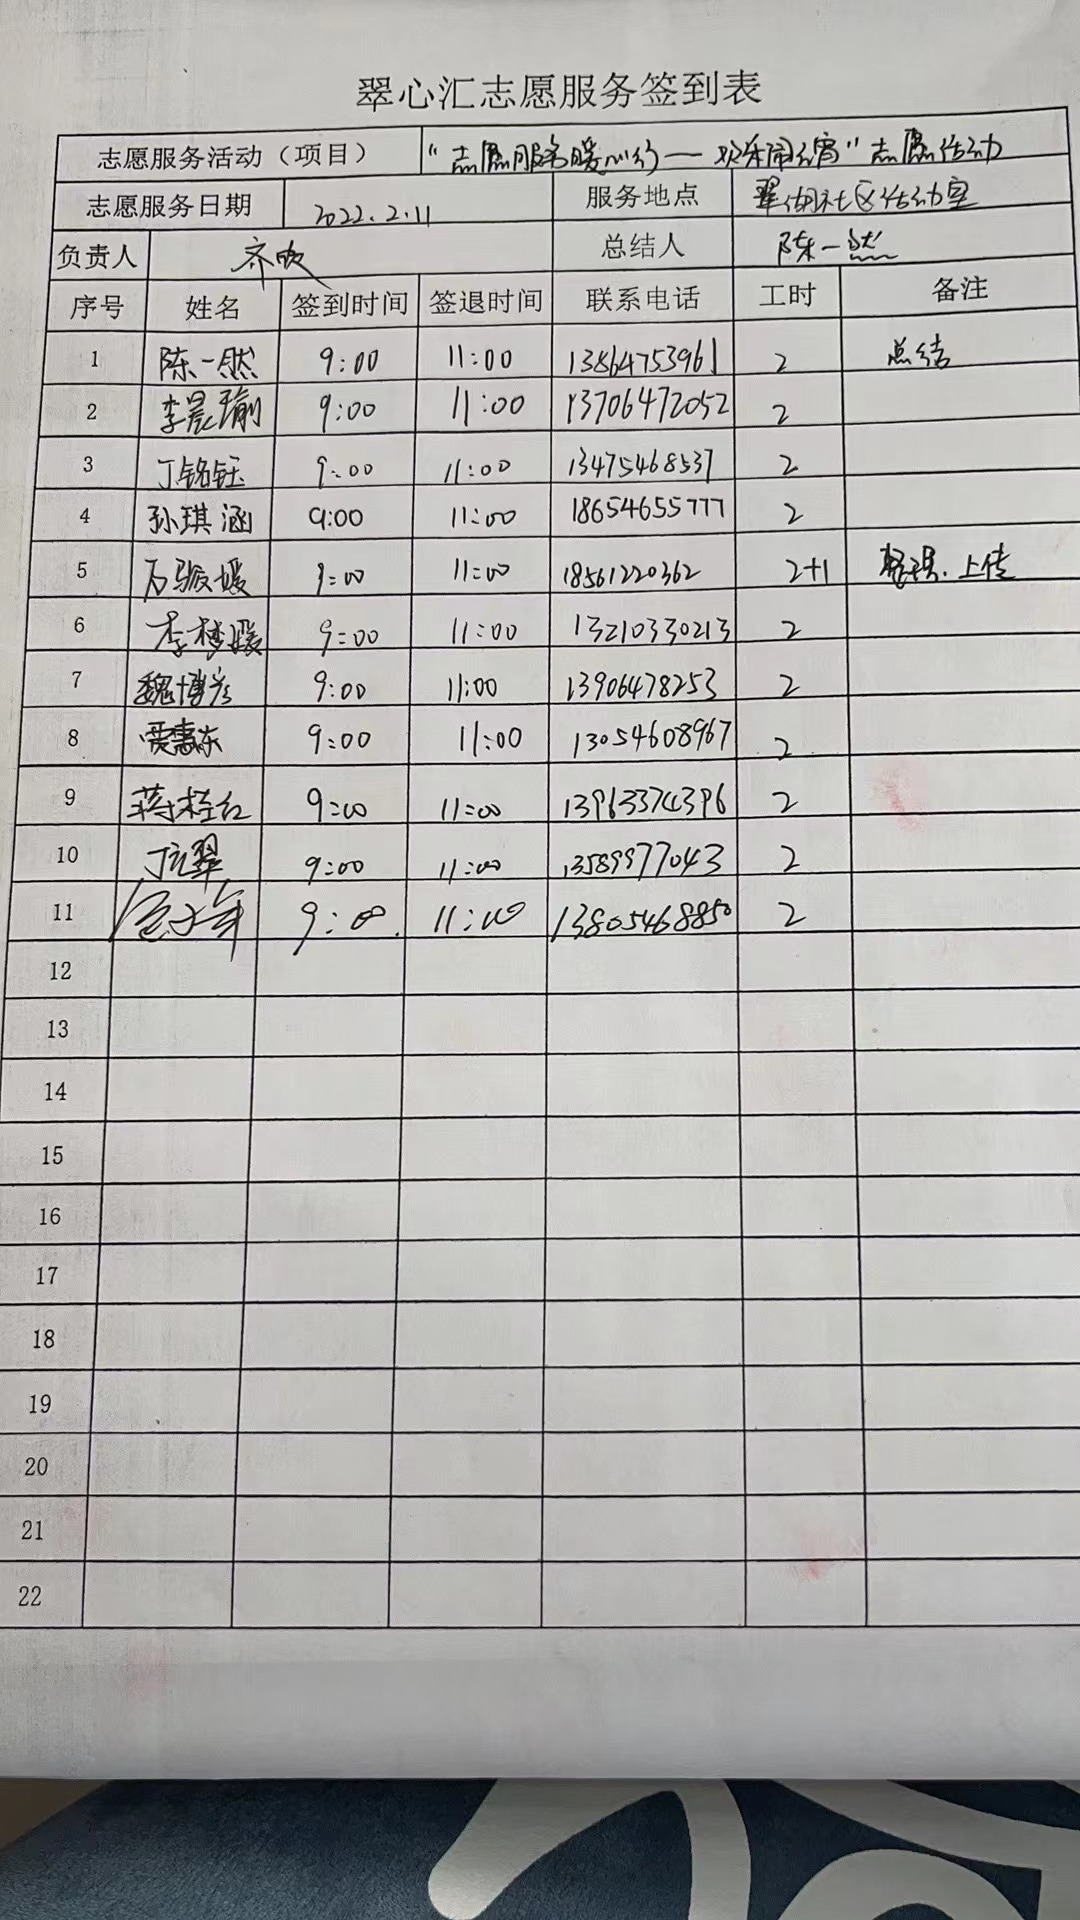 翠心汇志愿服务签到表
志愿服务活动（项目） “志愿服务暖心行——欢乐闹元宵”志愿活动
志愿服务日期 2022.2.11 服务地点 翠湖社区活动室
负责人 齐欣 总结人 陈一然
序号 姓名 签到时间 签退时间 联系电话 工时 备注
1 陈一然 9:00 11:00 13864753961 2 总结
2 李晨瑜 9:00 11:00 13706472052 2
3 丁铭钰 9:00 11:00 13475468537 2
4 孙琪涵 9:00 11:00 18654655777 2
5 石璇媛 9:00 11:00 18561220362 2+1 整理、上传
6 李梦媛 9:00 11:00 13210330213 2
7 魏博彦 9:00 11:00 13906478253 2
8 贾惠东 9:00 11:00 13054608967 2
9 蒋桂红 9:00 11:00 13963374396 2
10 丁立翠 9:00 11:00 13589977043 2
11 9:00 11:00 13805468850 2
12
13
14
15
16
17
18
19
20
21
22